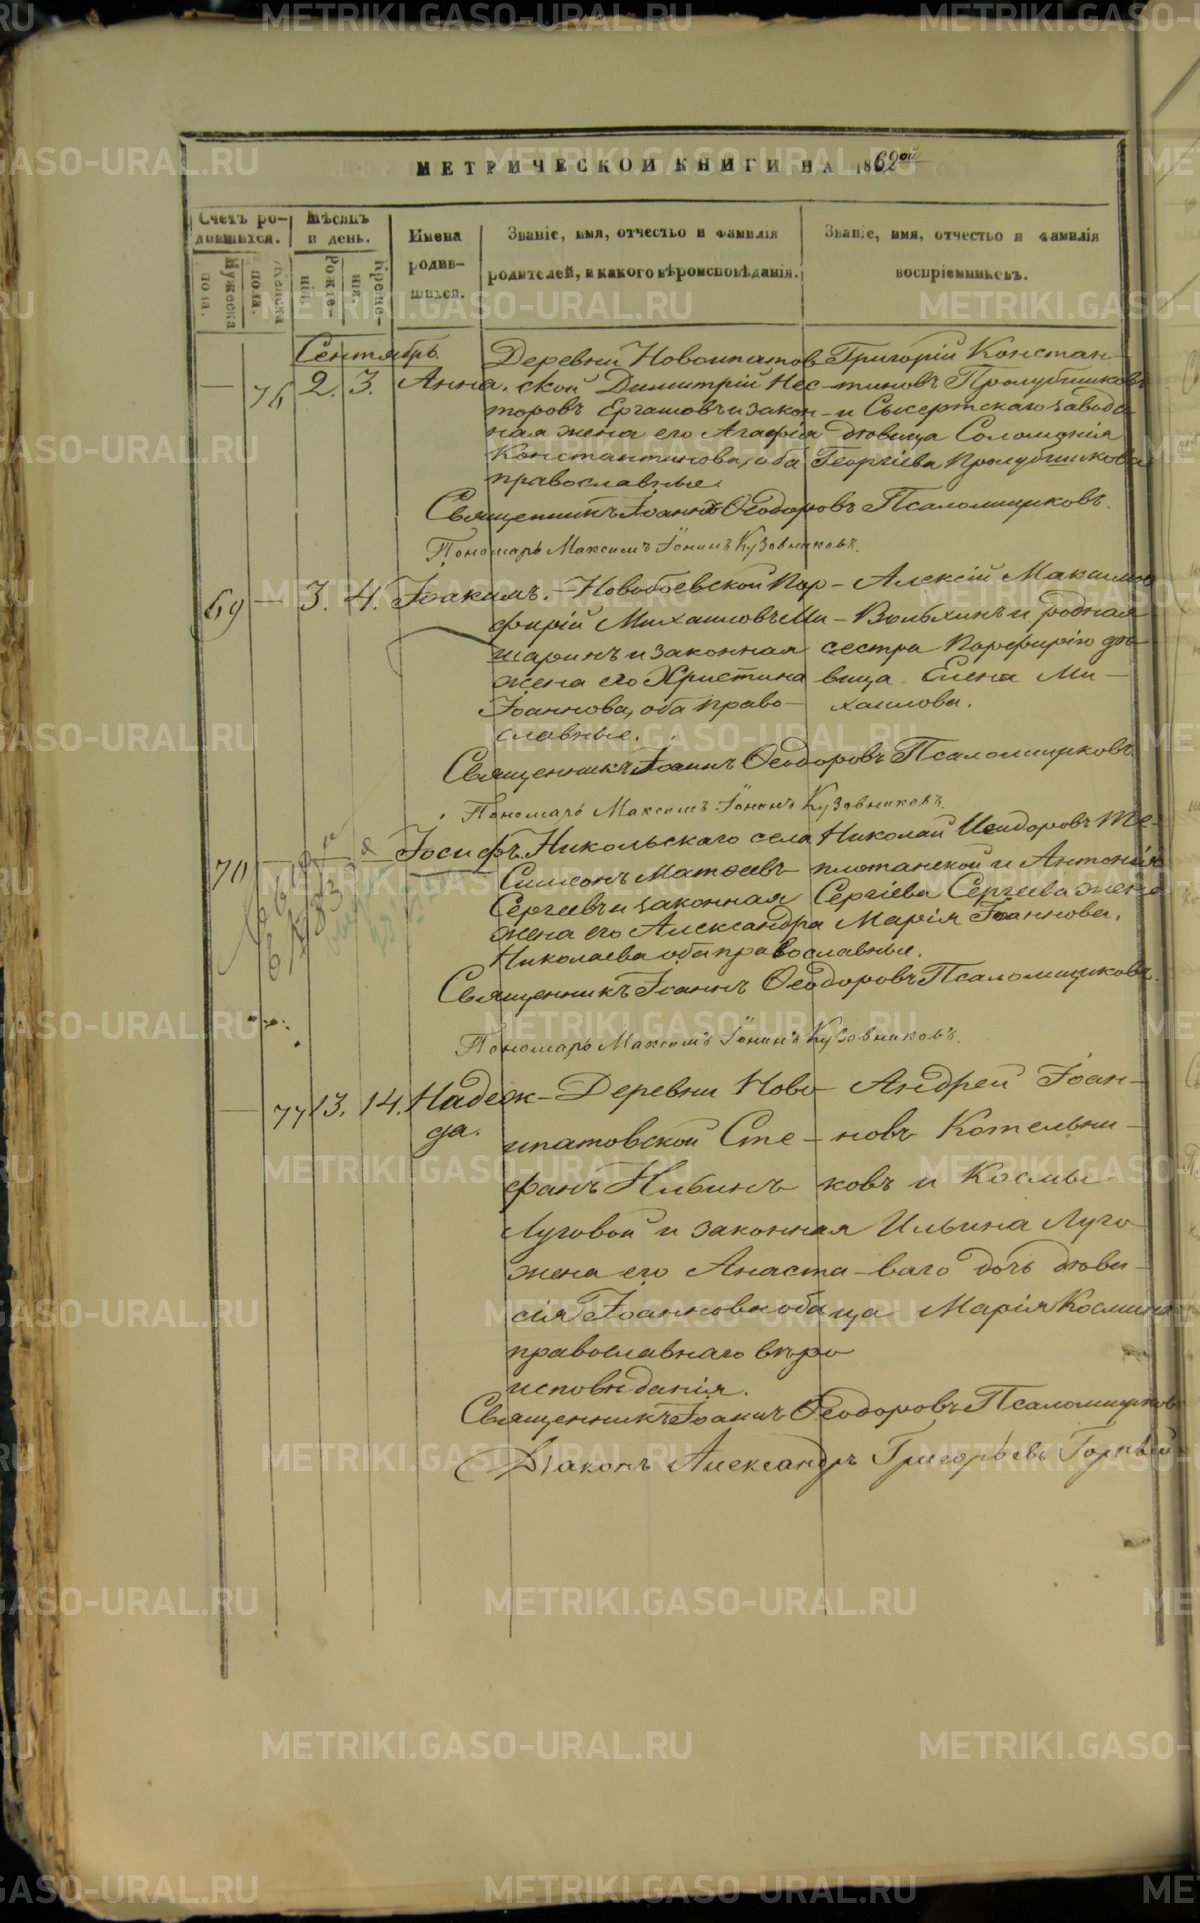 МЕТРИЧЕСКОЙ КНИГИ НА 1862ой
Счетъ ро-
дившихся.
Мѣсяцъ
и день.
Имена
родив-
шихся.
Званіе, имя, отчество и фамилія
родителей, и какого вѣроисповѣданія.
Званіе, имя, отчество и фамилія
воспріемниковъ.
Мужеска
пола.
Женска
пола.
Рожде-
нія.
Креще-
нія.
Сентябрь.
— 76 2. 3. Анна.
Деревни Новоипатов-
ской Димитрій Нес-
торовъ Ергашовъ и закон-
ная жена его Агафія
Константинова, оба
православные.
Григорій Констан-
тиновъ Пролубщиковъ
и Сысертскаго завода
дѣвица Соломонія
Георгіева Пролубщикова
Священникъ Іоаннъ Ѳеодоровъ Псаломщиковъ.
Пономарь Максимъ Іонинъ Кузовниковъ.
69 — 3. 4. Іоакимъ.
Новобоевской Пор-
фирій Михаиловъ Ми-
шаринъ и законная
жена его Христина
Іоаннова, оба право-
славные.
Алексій Максимов
Вольхинъ и родная
сестра Порфирію дѣ-
вица Елена Ми-
хаилова.
Священникъ Іоаннъ Ѳеодоровъ Псаломщиковъ
Пономарь Максимъ Іонинъ Кузовниковъ.
70 Іосифъ.
Никольскаго села
Симеонъ Матѳеевъ
Сергеевъ и законная
жена его Александра
Николаева оба православные.
Николай Исидоровъ Те-
плотанской и Антонія
Сергіева Сергеева жена
Марія Іоаннова.
Священникъ Іоаннъ Ѳеодоровъ Псаломщиковъ.
Пономарь Максимъ Іонинъ Кузовниковъ.
— 77 13. 14. Надеж-
да.
Деревни Ново-
ипатовской Сте-
фанъ Ильинъ
Луговой и законная
жена его Анаста-
сія Іоаннова оба
православнаго вѣро
исповѣданія.
Андрей Іоан-
новъ Котельни-
ковъ и Космы
Ильина Луго-
ваго дочь дѣви-
ца Марія Космина
Священникъ Іоаннъ Ѳеодоровъ Псаломщиковъ
Діаконъ Александръ Григорьевъ Горный
METRIKI.GASO-URAL.RU